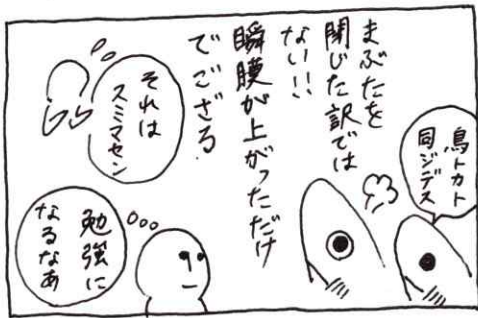 鳥トカト
同ジデス
まぶたを
閉じた訳では
ない!!
瞬膜が上がっただけ
でござる
それは
スミマセン
勉強に
なるなあ